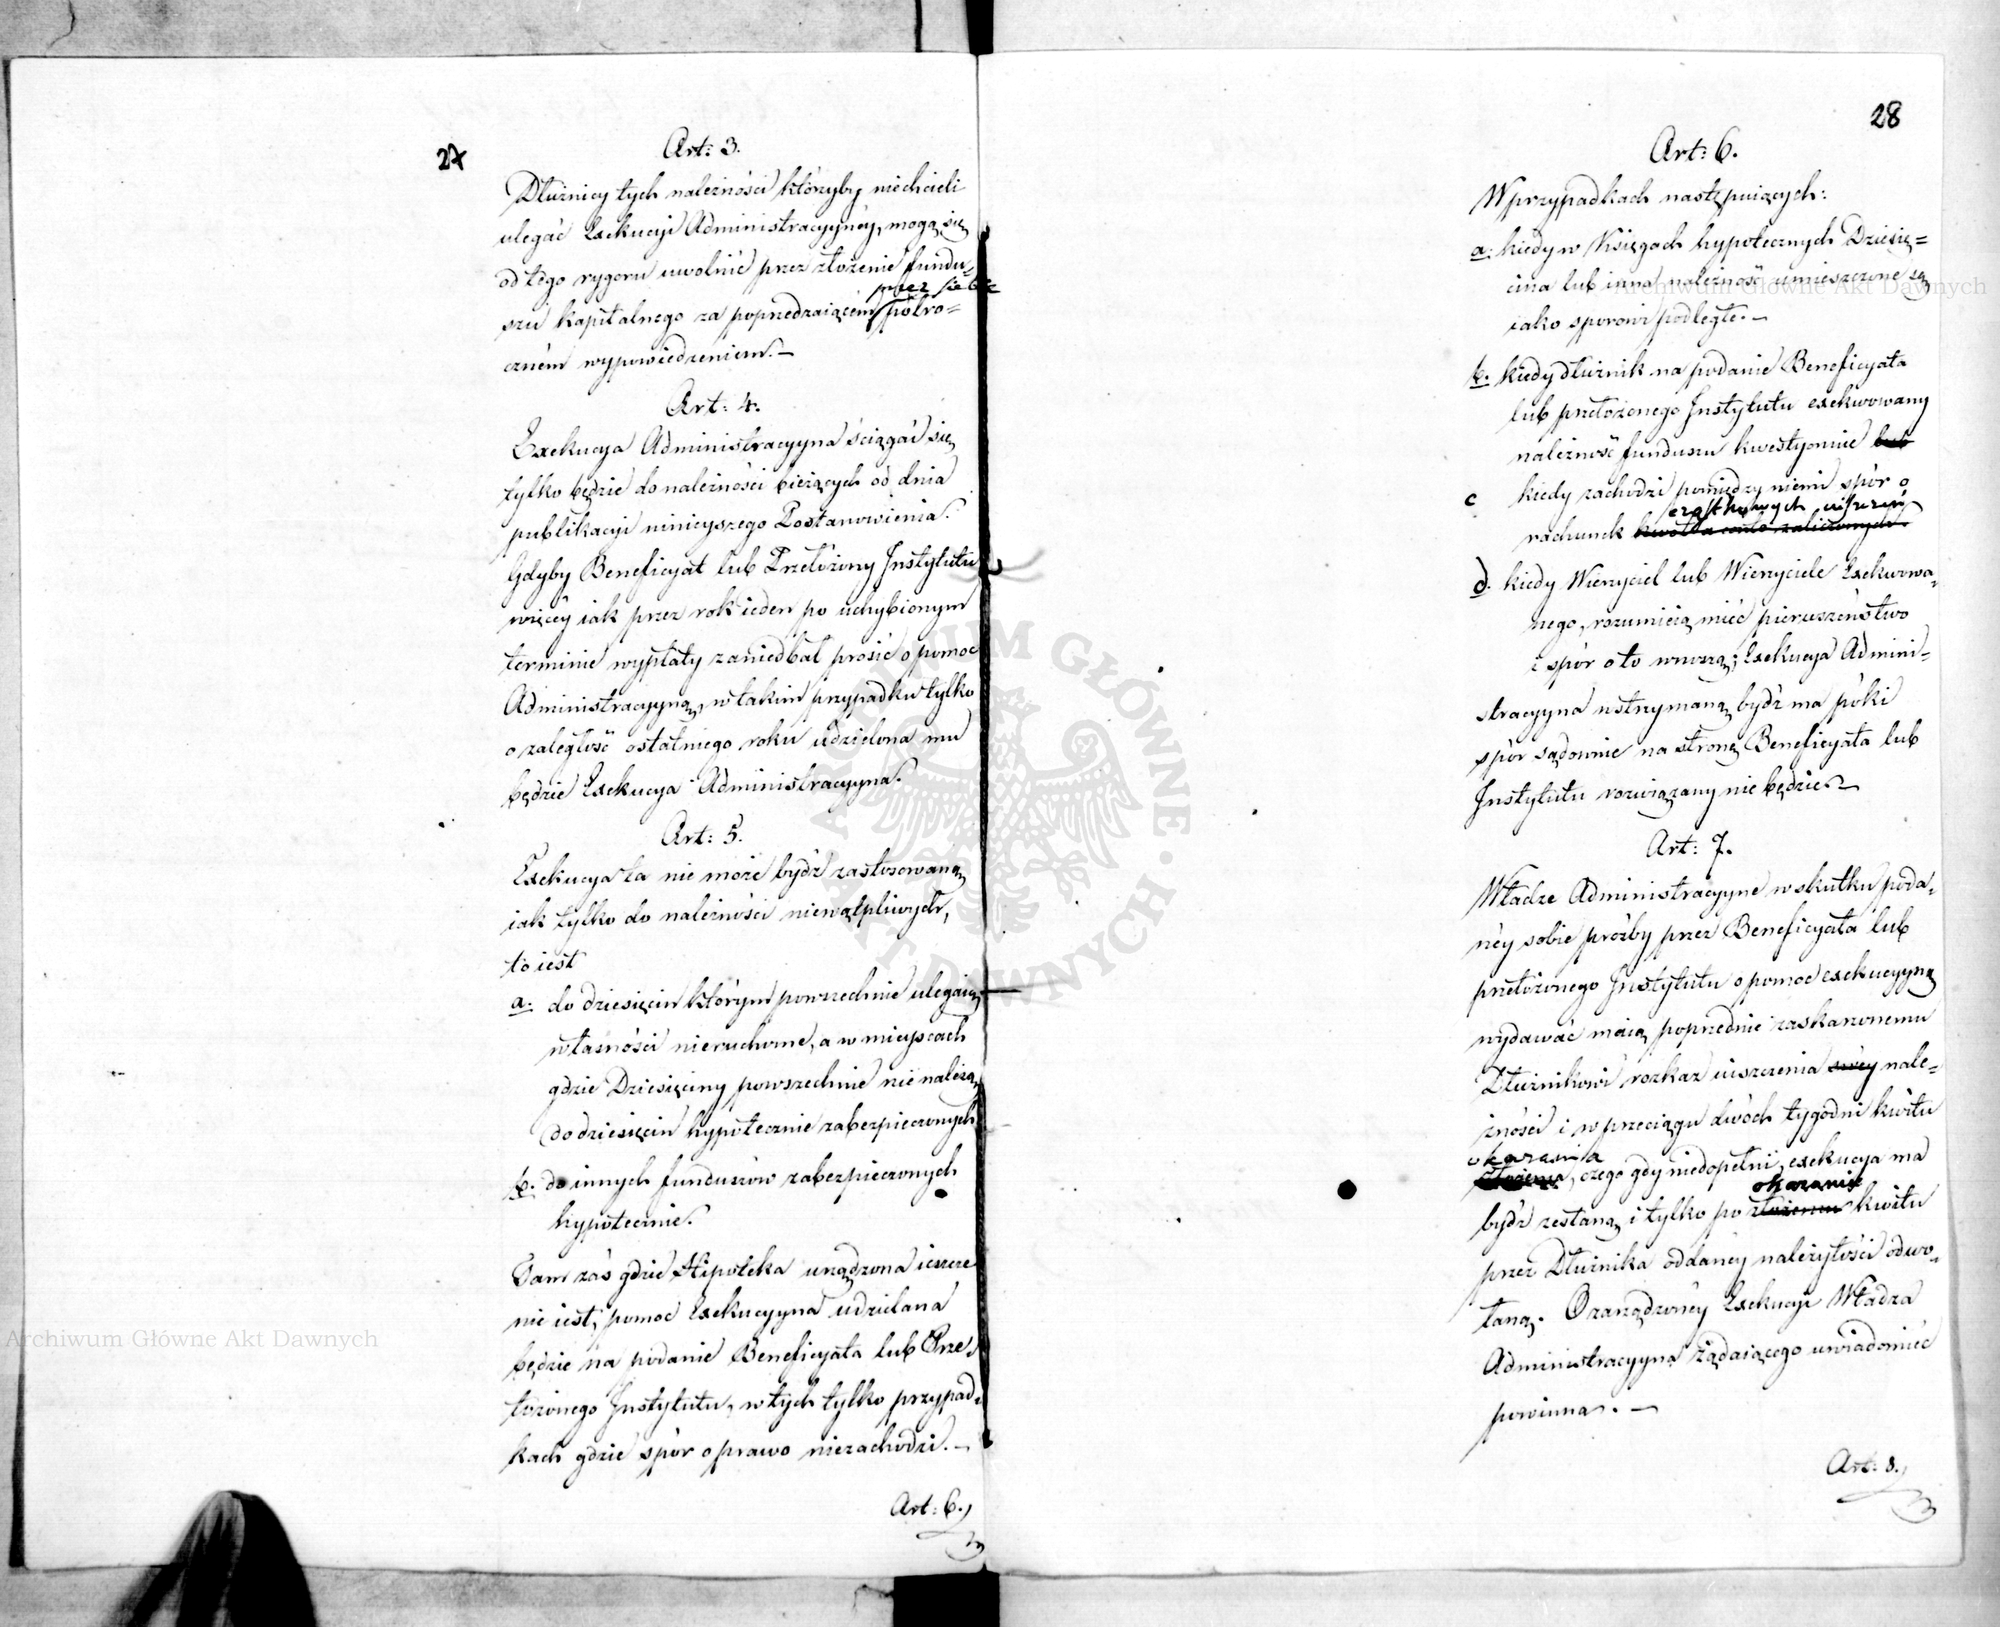 27
Art: 3.
Dłużnicy tych należności którzyby niechcieli
ulegać Exekucyi Administracyynéy, mogą się
od tego rygoru uwolnić przez złożenie fundu-
przez siebie
szu kapitalnego za poprzedzaiącem półro=
czném wypowiedzeniem. –
Art: 4.
Exekucya Administracyyna ściągać się
tylko będzie do należności bieżących od dnia
publikacyi ninieyszego Postanowienia.
Gdyby Beneficyat lub Przełożony Instytutu
więcéy iak przez rok ieden po uchybionym
terminie wypłaty zaniedbał prosić o pomoc
Administracyyną, w takim przypadku tylko
o zaległość ostatniego roku udzielona mu
będzie Exekucya Administracyyna.
Art: 5.
Exekucya ta nie może bydź zastosowaną
iak tylko do należności niewątpliwych,
to iest
a. do dziesięcin którym powszechnie ulegaią
własności nieruchome, a w mieyscach
gdzie Dziesięciny powszechnie nie należą
do dziesięcin hypotecznie zabezpieczonych
b. do innych funduszów zabezpieczonych
hypotecznie.
Tam zaś gdzie Hipoteka urządzona ieszcze
nie iest, pomoc Exekucyyna udzielana
będzie na podanie Beneficyata lub Prze-
łożonego Instytutu, w tych tylko przypad-
kach gdzie spór o prawo niezachodzi. –
Art: 6.
28
Art: 6.
W przypadkach następuiących:
a: kiedy w Księgach hypotecznych Dziesię=
cina lub inna należność umieszczone są
iako sporowi podległe. –
b. kiedy dłużnik na podanie Beneficyata
lub przełożonego Instytutu exekwowany
należność funduszu kwestyonuie lub
c kiedy zachodzi pomiędzy niemi spór o
cząstkowych uiszczeń
rachunek
d. kiedy Wierzyciel lub Wierzyciele Exekwowa-
nego, rozumieią mieć pierwszeństwo
i spór o to wnoszą; Exekucya Admini-
stracyyna wstrzymaną bydź ma póki
spór sądownie na stronę Beneficyata lub
Instytutu rozwiązany nie będzie. –
Art: 7.
Władze Administracyyne w skutku poda-
néy sobie prośby przez Beneficyata lub
przełożonego Instytutu o pomoc exekucyyną
wydawać maią poprzednie zaskarżonemu
Dłużnikowi rozkaz uiszczenia swéy nale-
żności i w przeciągu dwóch tygodni kwitu
okazania
złożenia, czego gdy niedopełni, exekucya ma
okazaniu
bydź zesłaną i tylko po złożeniu kwitu
przez Dłużnika oddanéy należytości odwo-
łaną. O zarządzonéy Exekucyi Władza
Administracyyna żądaiącego uwiadomić
powinna. –
Art: 8.
Archiwum Główne Akt Dawnych
Archiwum Główne Akt Dawnych
ARCHIWUM GŁÓWNE AKT DAWNYCH